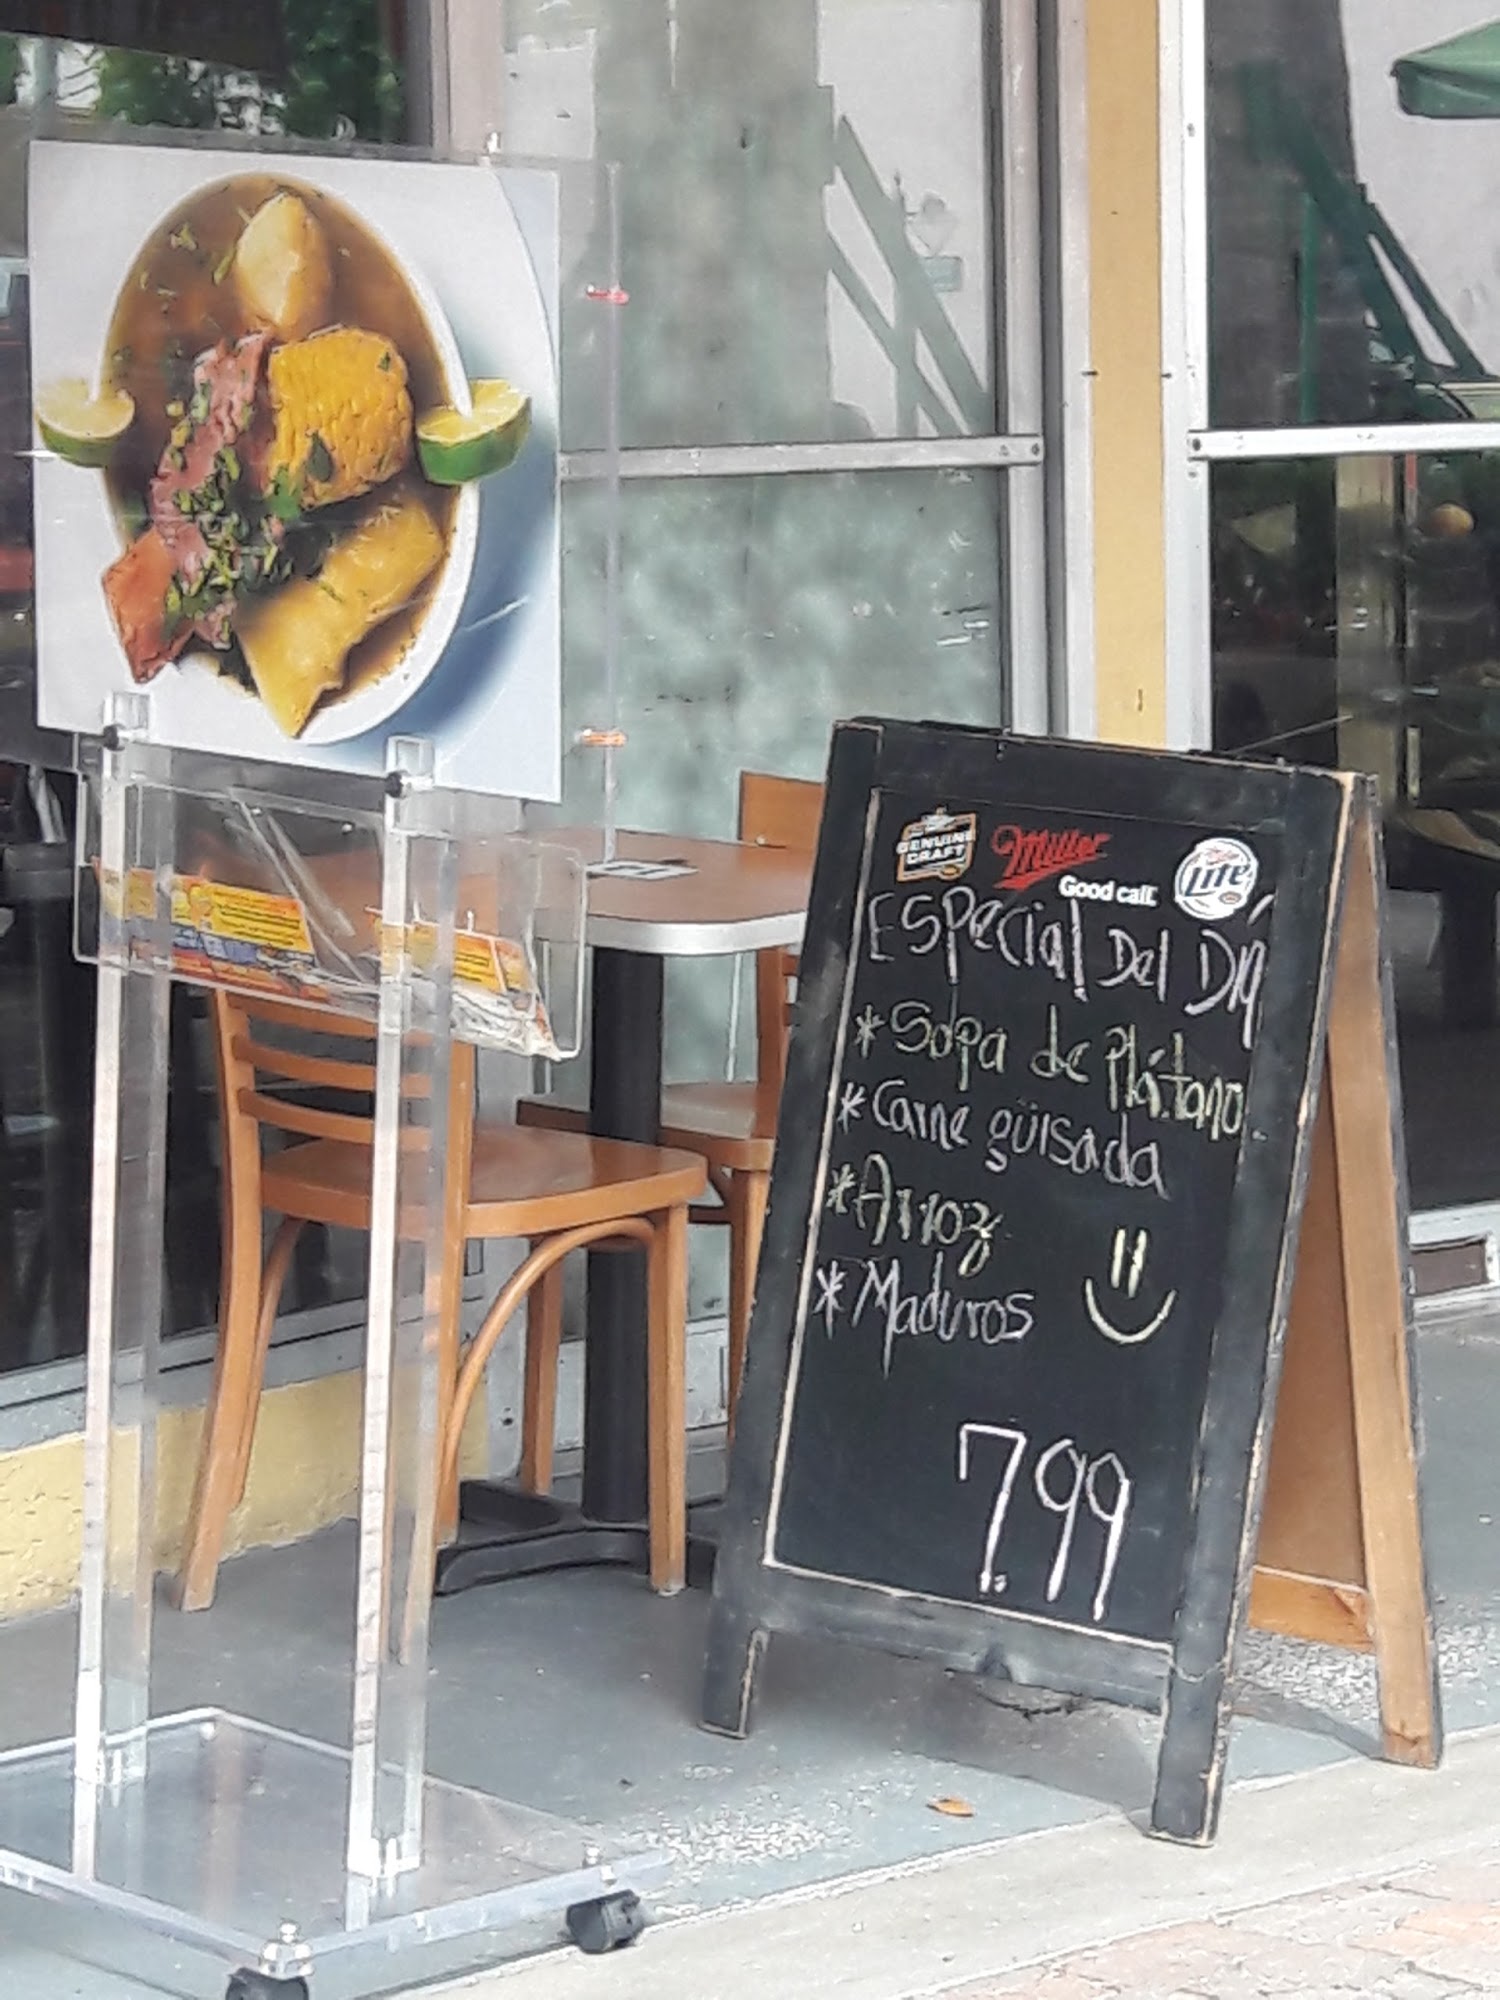 GENUINE
DRAFT
Miller
Good call.
Lite
Especial Del Día
* Sopa de Plátano
* Carne güisada
* Arroz
* Maduros
7.99